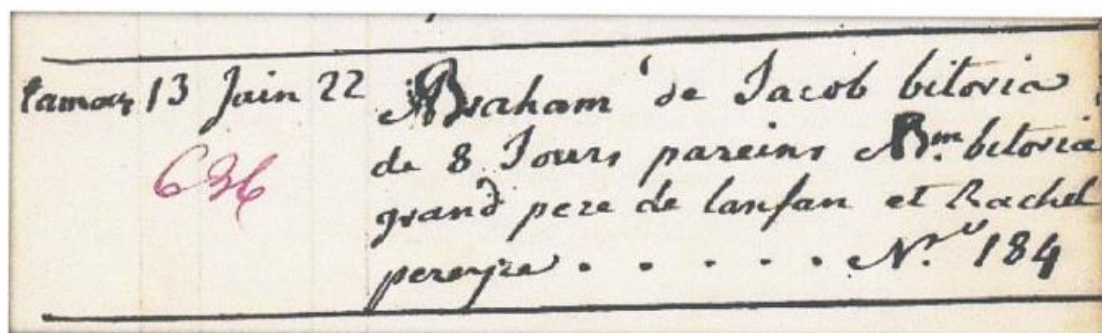 tamouz 13 Juin 22 Abraham de Jacob bitoria
de 8 Jours pareins Abm. bitoria
grand pere de lanfan et Rachel
pereyre . . . . . . Nro 184